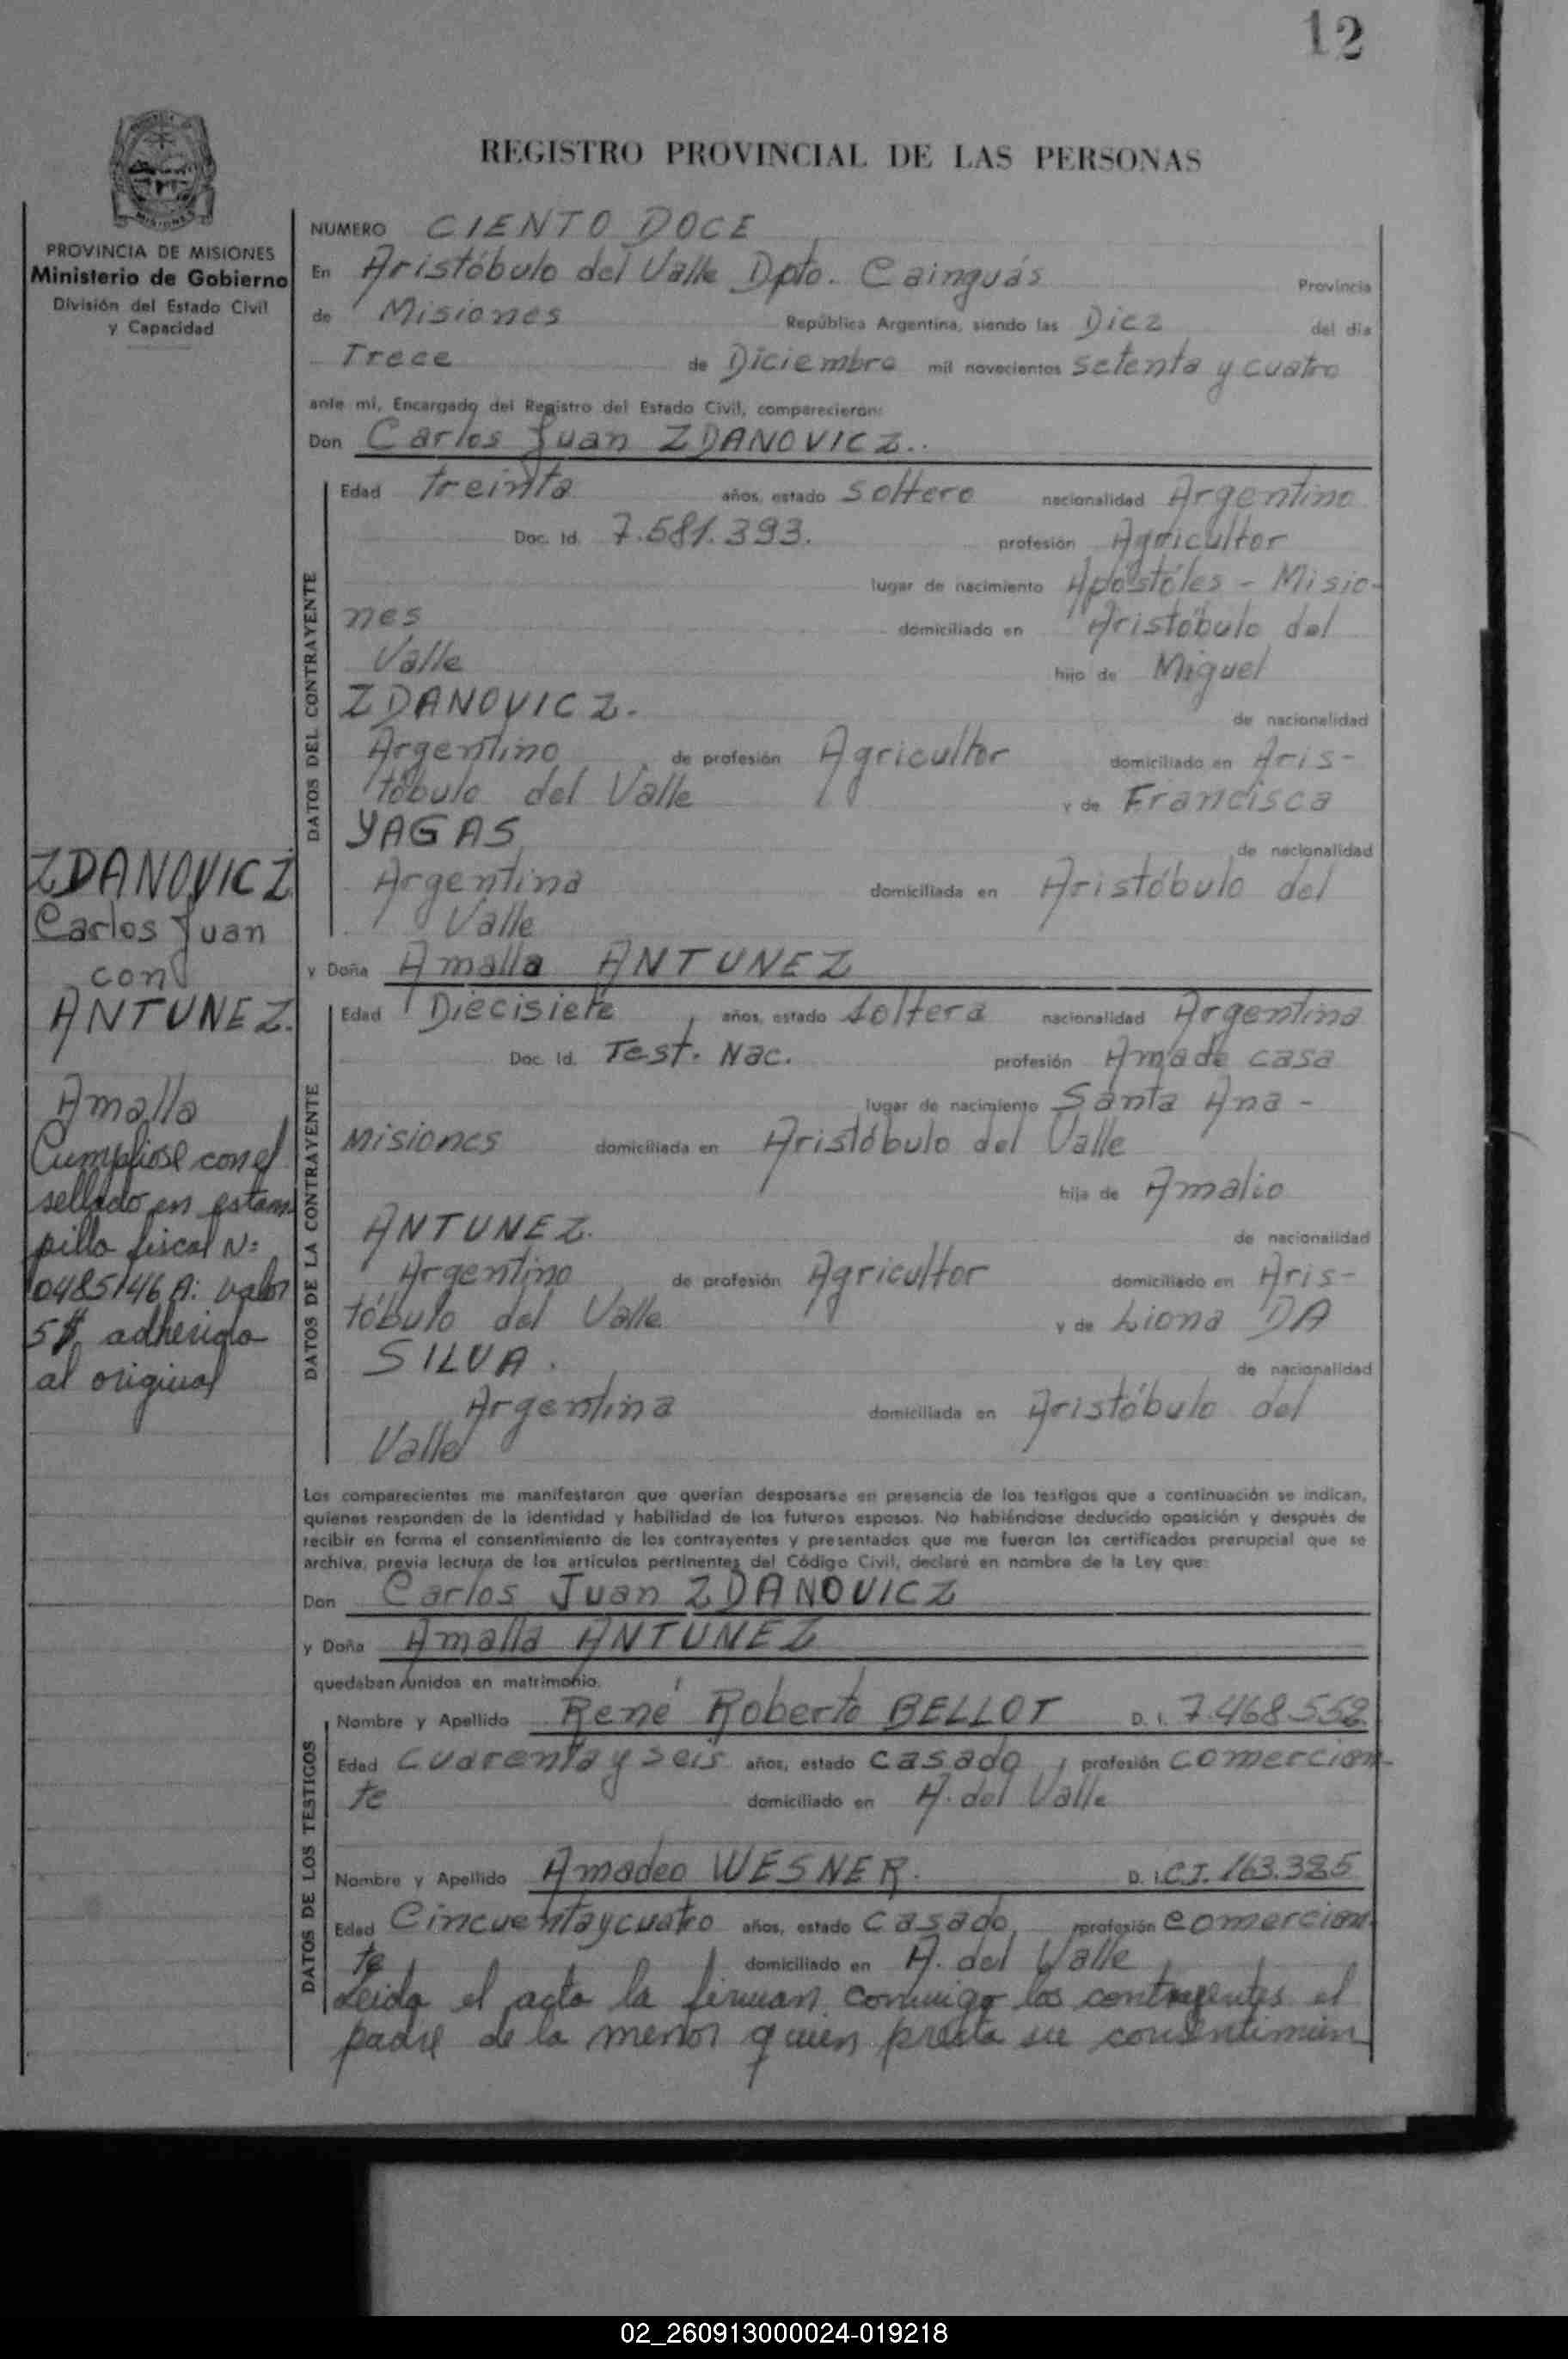 12
REGISTRO PROVINCIAL DE LAS PERSONAS
PROVINCIA DE MISIONES
Ministerio de Gobierno
División del Estado Civil
y Capacidad
NUMERO CIENTO DOCE
En Aristóbulo del Valle Dpto. Cainguás Provincia
de Misiones República Argentina, siendo las Diez del día
Trece de Diciembre mil novecientos setenta y cuatro
ante mí, Encargado del Registro del Estado Civil, comparecieron:
Don Carlos Juan ZDANOVICZ..
DATOS DEL CONTRAYENTE
Edad treinta años, estado soltero nacionalidad Argentino
Doc. Id. 7.581.393. profesión Agricultor
lugar de nacimiento Apóstoles - Misio-
nes domiciliado en Aristóbulo del
Valle hijo de Miguel
ZDANOVICZ. de nacionalidad
Argentino de profesión Agricultor domiciliado en Aris-
tóbulo del Valle y de Francisca
YAGAS de nacionalidad
Argentina domiciliada en Aristóbulo del
Valle
ZDANOVICZ
Carlos Juan
con
ANTUNEZ.
Amalla
Cumpliose con el
sellado en estam
pilla fiscal N:
0485146 A: valor
5$ adherida
al original
y Doña Amalla ANTUNEZ
DATOS DE LA CONTRAYENTE
Edad Diecisiete años, estado soltera nacionalidad Argentina
Doc. Id. Test. Nac. profesión Ama de casa
lugar de nacimiento Santa Ana -
Misiones domiciliada en Aristóbulo del Valle
hija de Amalio
ANTUNEZ. de nacionalidad
Argentino de profesión Agricultor domiciliado en Aris-
tóbulo del Valle y de Liona DA
SILVA. de nacionalidad
Argentina domiciliada en Aristóbulo del
Valle
Los comparecientes me manifestaron que querían desposarse en presencia de los testigos que a continuación se indican,
quienes responden de la identidad y habilidad de los futuros esposos. No habiéndose deducido oposición y después de
recibir en forma el consentimiento de los contrayentes y presentados que me fueron los certificados prenupcial que se
archiva, previa lectura de los artículos pertinentes del Código Civil, declaré en nombre de la Ley que:
Don Carlos Juan ZDANOVICZ
y Doña Amalla ANTUNEZ
quedaban unidos en matrimonio.
DATOS DE LOS TESTIGOS
Nombre y Apellido René Roberto BELLOT D. I. 7.468.552
Edad cuarenta y seis años, estado casado, profesión comercian-
te domiciliado en A. del Valle
Nombre y Apellido Amadeo WESNER. D. I. C.I. 163.385
Edad Cincuenta y cuatro años, estado casado, profesión comercian-
te domiciliado en A. del Valle
Leída el acta la firman conmigo los contrayentes el
padre de la menor quien presta su consentimien
02_260913000024-019218